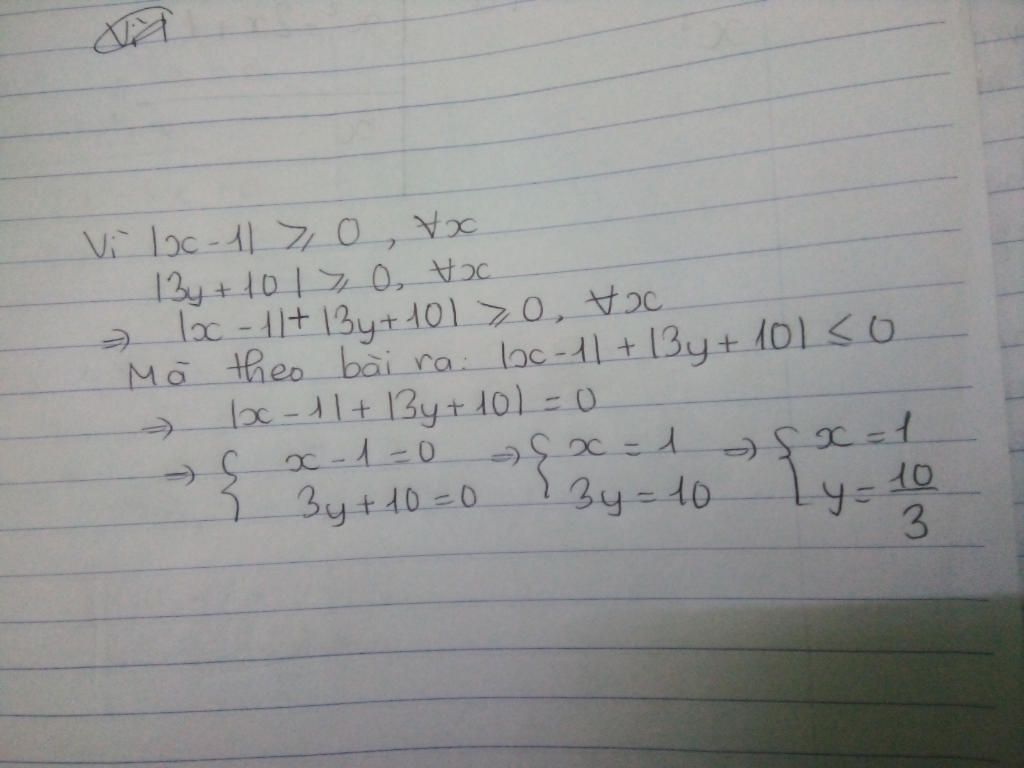 Vì |x - 1| ≥ 0, ∀x
|3y + 10| ≥ 0, ∀x
⇒ |x - 1| + |3y + 10| ≥ 0, ∀x
Mà theo bài ra: |x - 1| + |3y + 10| ≤ 0
⇒ |x - 1| + |3y + 10| = 0
⇒ { x - 1 = 0 ⇒ { x = 1 ⇒ { x = 1
3y + 10 = 0 3y = 10 y = 10/3